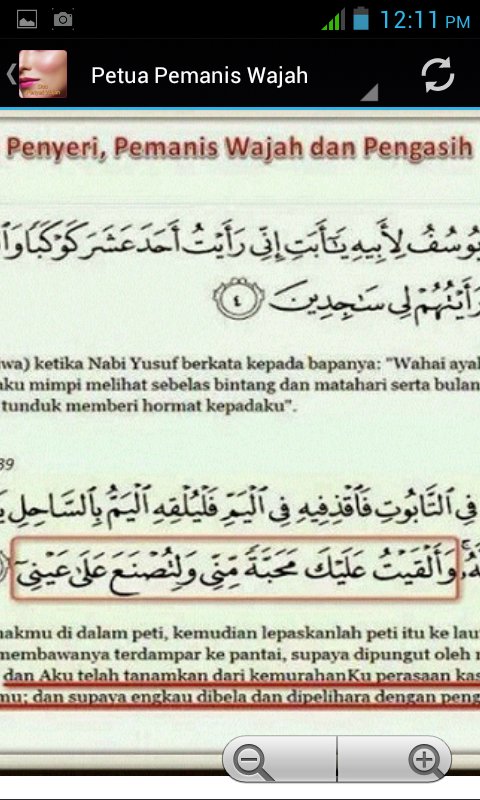 12:11 PM
Petua Pemanis Wajah
Penyeri, Pemanis Wajah dan Pengasih
يُوسُفُ لِأَبِيهِ يَٰٓأَبَتِ إِنِّي رَأَيْتُ أَحَدَ عَشَرَ كَوْكَبًا وَال
رَأَيْتُهُمْ لِي سَٰجِدِينَ ٤
wa) ketika Nabi Yusuf berkata kepada bapanya: "Wahai aya
aku mimpi melihat sebelas bintang dan matahari serta bulan
tunduk memberi hormat kepadaku".
39
فِي التَّابُوتِ فَاقْذِفِيهِ فِي الْيَمِّ فَلْيُلْقِهِ الْيَمُّ بِالسَّاحِلِ
وَأَلْقَيْتُ عَلَيْكَ مَحَبَّةً مِّنِّي وَلِتُصْنَعَ عَلَىٰ عَيْنِيٓ
nakmu di dalam peti, kemudian lepaskanlah peti itu ke lau
membawanya terdampar ke pantai, supaya dipungut oleh
dan Aku telah tanamkan dari kemurahanKu perasaan kas
mu; dan supaya engkau dibela dan dipelihara dengan peng